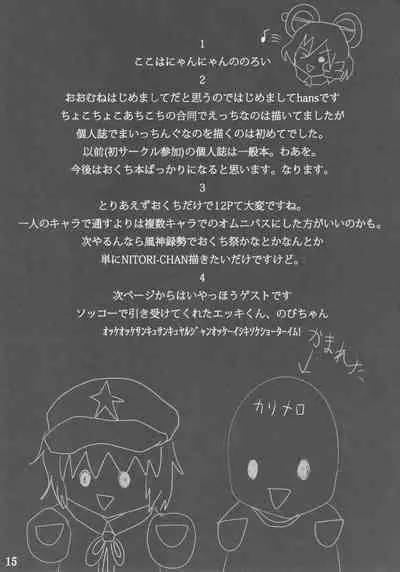 1
ここはにゃんにゃんののろい
2
おおむねはじめましてだと思うのではじめましてhansです
ちょこちょこあちこちの合同でえっちなのは描いてましたが
個人誌でまいっちんぐなのを描くのは初めてでした。
以前(初サークル参加)の個人誌は一般本。わあを。
今後はおくち本ばっかりになると思います。なります。
3
とりあえずおくちだけで12Pて大変ですね。
一人のキャラで通すよりは複数キャラでのオムニバスにした方がいいのかも。
次やるんなら風神録勢でおくち祭かなとかなんとか
単にNITORI-CHAN描きたいだけですけど。
4
次ページからはいやっほうゲストです
ソッコーで引き受けてくれたエッキくん、のびちゃん
ｵｯｹｵｯｹｻﾝｷｭｻﾝｷｭﾔﾙｼﾞｬﾝｵｯｹｰｲｼｷｿﾞｸｼｮｰﾀｰｲﾑ!
かまれた
カリメロ
15